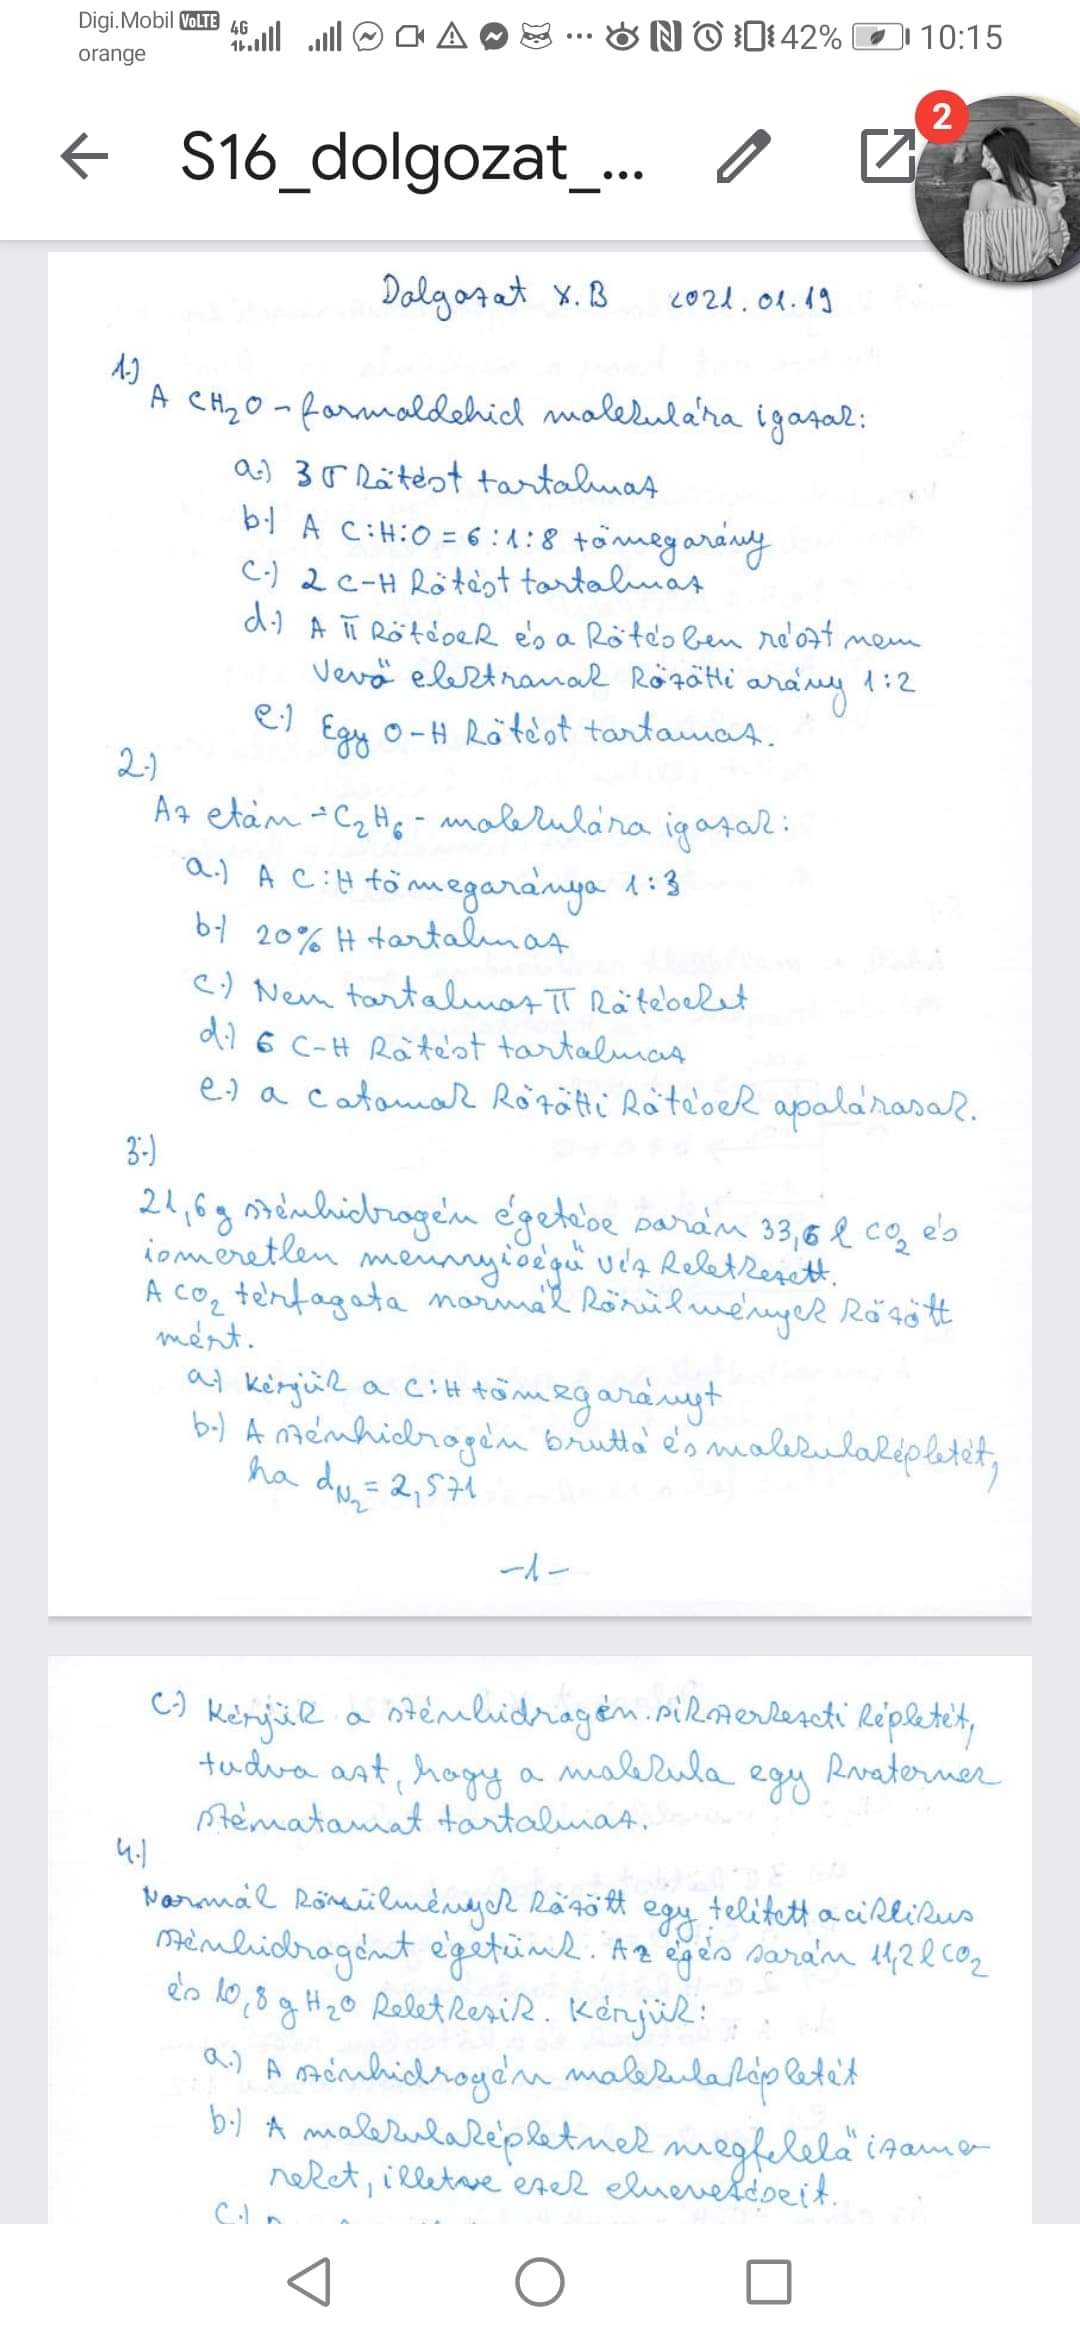 Digi.Mobil VoLTE 4G
orange
42% 10:15
S16_dolgozat_...
2
Dolgozat X.B 2021.01.19
1.)
A CH2O - formaldehid molekulára igazak:
a.) 3 σ kötést tartalmaz
b.) A C:H:O = 6:1:8 tömegarány
c.) 2 C-H kötést tartalmaz
d.) A π kötések és a kötésben részt nem
vevő elektronok közötti arány 1:2
e.) Egy O-H kötést tartamaz.
2.)
Az etán - C2H6 - molekulára igazak:
a.) A C:H tömegaránya 1:3
b.) 20% H tartalmaz
c.) Nem tartalmaz π kötéseket
d.) 6 C-H kötést tartalmaz
e.) a C atomok közötti kötések apolárosak.
3.)
21,6 g szénhidrogén égetése során 33,6 l CO2 és
ismeretlen mennyiségű víz keletkezett.
A CO2 térfogata normál körülmények között
mért.
a.) Kérjük a C:H tömegarányt
b.) A szénhidrogén bruttó és molekulaképletét,
ha dN2 = 2,571
-1-
c.) Kérjük a szénhidrogén síkszerkezeti képletét,
tudva azt, hogy a molekula egy kvaterner
szénatomot tartalmaz.
4.)
Normál körülmények között egy telített aciklikus
szénhidrogént égetünk. Az égés során 11,2 l CO2
és 10,8 g H2O keletkezik. Kérjük:
a.) A szénhidrogén molekulaképletét
b.) A molekulaképletnek megfelelő izome-
reket, illetve ezek elnevezéseit.
c.)